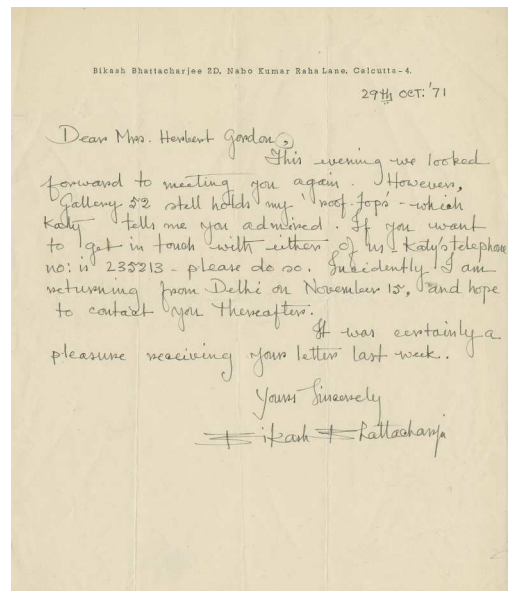 Bikash Bhattacharjee 2D, Nabo Kumar Raha Lane, Calcutta-4.
29th OCT: '71
Dear Mrs. Herbert Gordon,
This evening we looked
forward to meeting you again. However,
Gallery 52 still holds my 'roof-tops' - which
Katy tells me you admired. If you want
to get in touch with either of us Katy's telephone
no: is 235213 - please do so. Incidently I am
returning from Delhi on November 15, and hope
to contact you thereafter.
It was certainly a
pleasure receiving your letter last week.
Yours Sincerely
Bikash Bhattacharjee